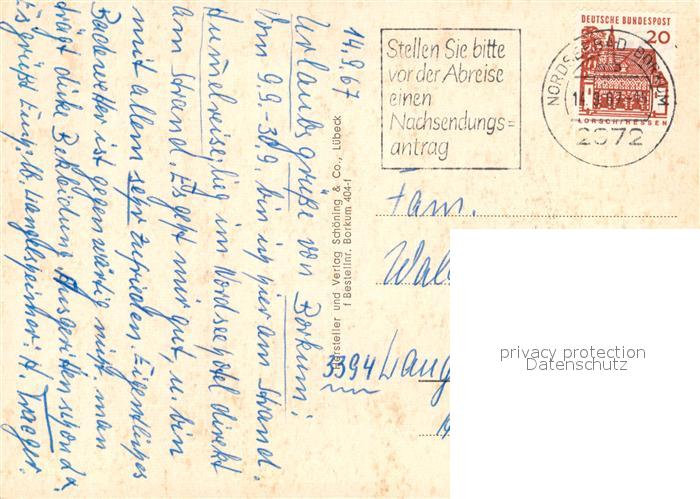 14.9.67
Urlaubsgrüße von Borkum!
Vom 9.9.-30.9. bin ich hier am Strand.
Hummelreisezug im Nordseehotel direkt
am Strand. Es geht mir gut, u. bin
mit allem sehr zufrieden. Eigentliches
Badewetter ist gegenwärtig nicht. man
trägt dicke Bekleidung.
Es grüßt
Hersteller und Verlag Schöning & Co., Lübeck
f Bestellnr. Borkum 404-f
Stellen Sie bitte
vor der Abreise
einen
Nachsendungs=
antrag
NORDSEEBAD BORKUM
2972
DEUTSCHE BUNDESPOST
20
LORSCH/HESSEN
Fam.
3394 Lang
privacy protection
Datenschutz